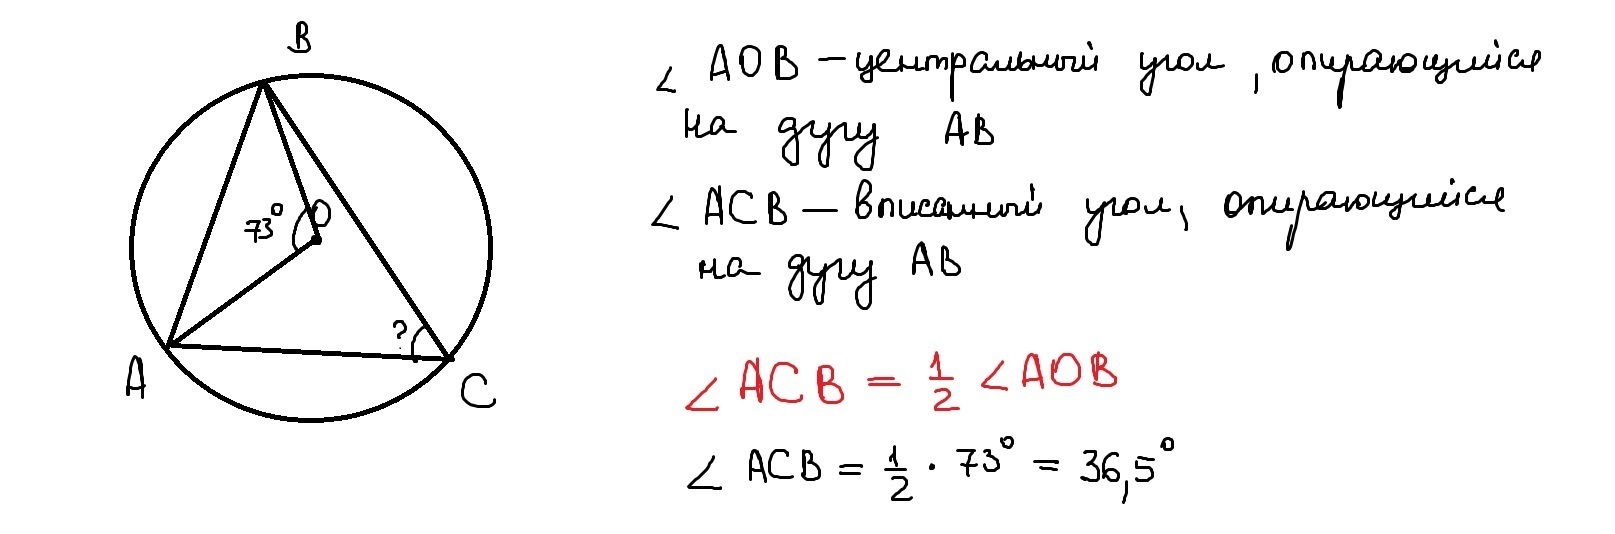 B
73° O
?
A
C
∠ AOB – центральный угол, опирающийся
на дугу AB
∠ ACB – вписанный угол, опирающийся
на дугу AB
∠ ACB = 1/2 ∠AOB
∠ ACB = 1/2 · 73° = 36,5°